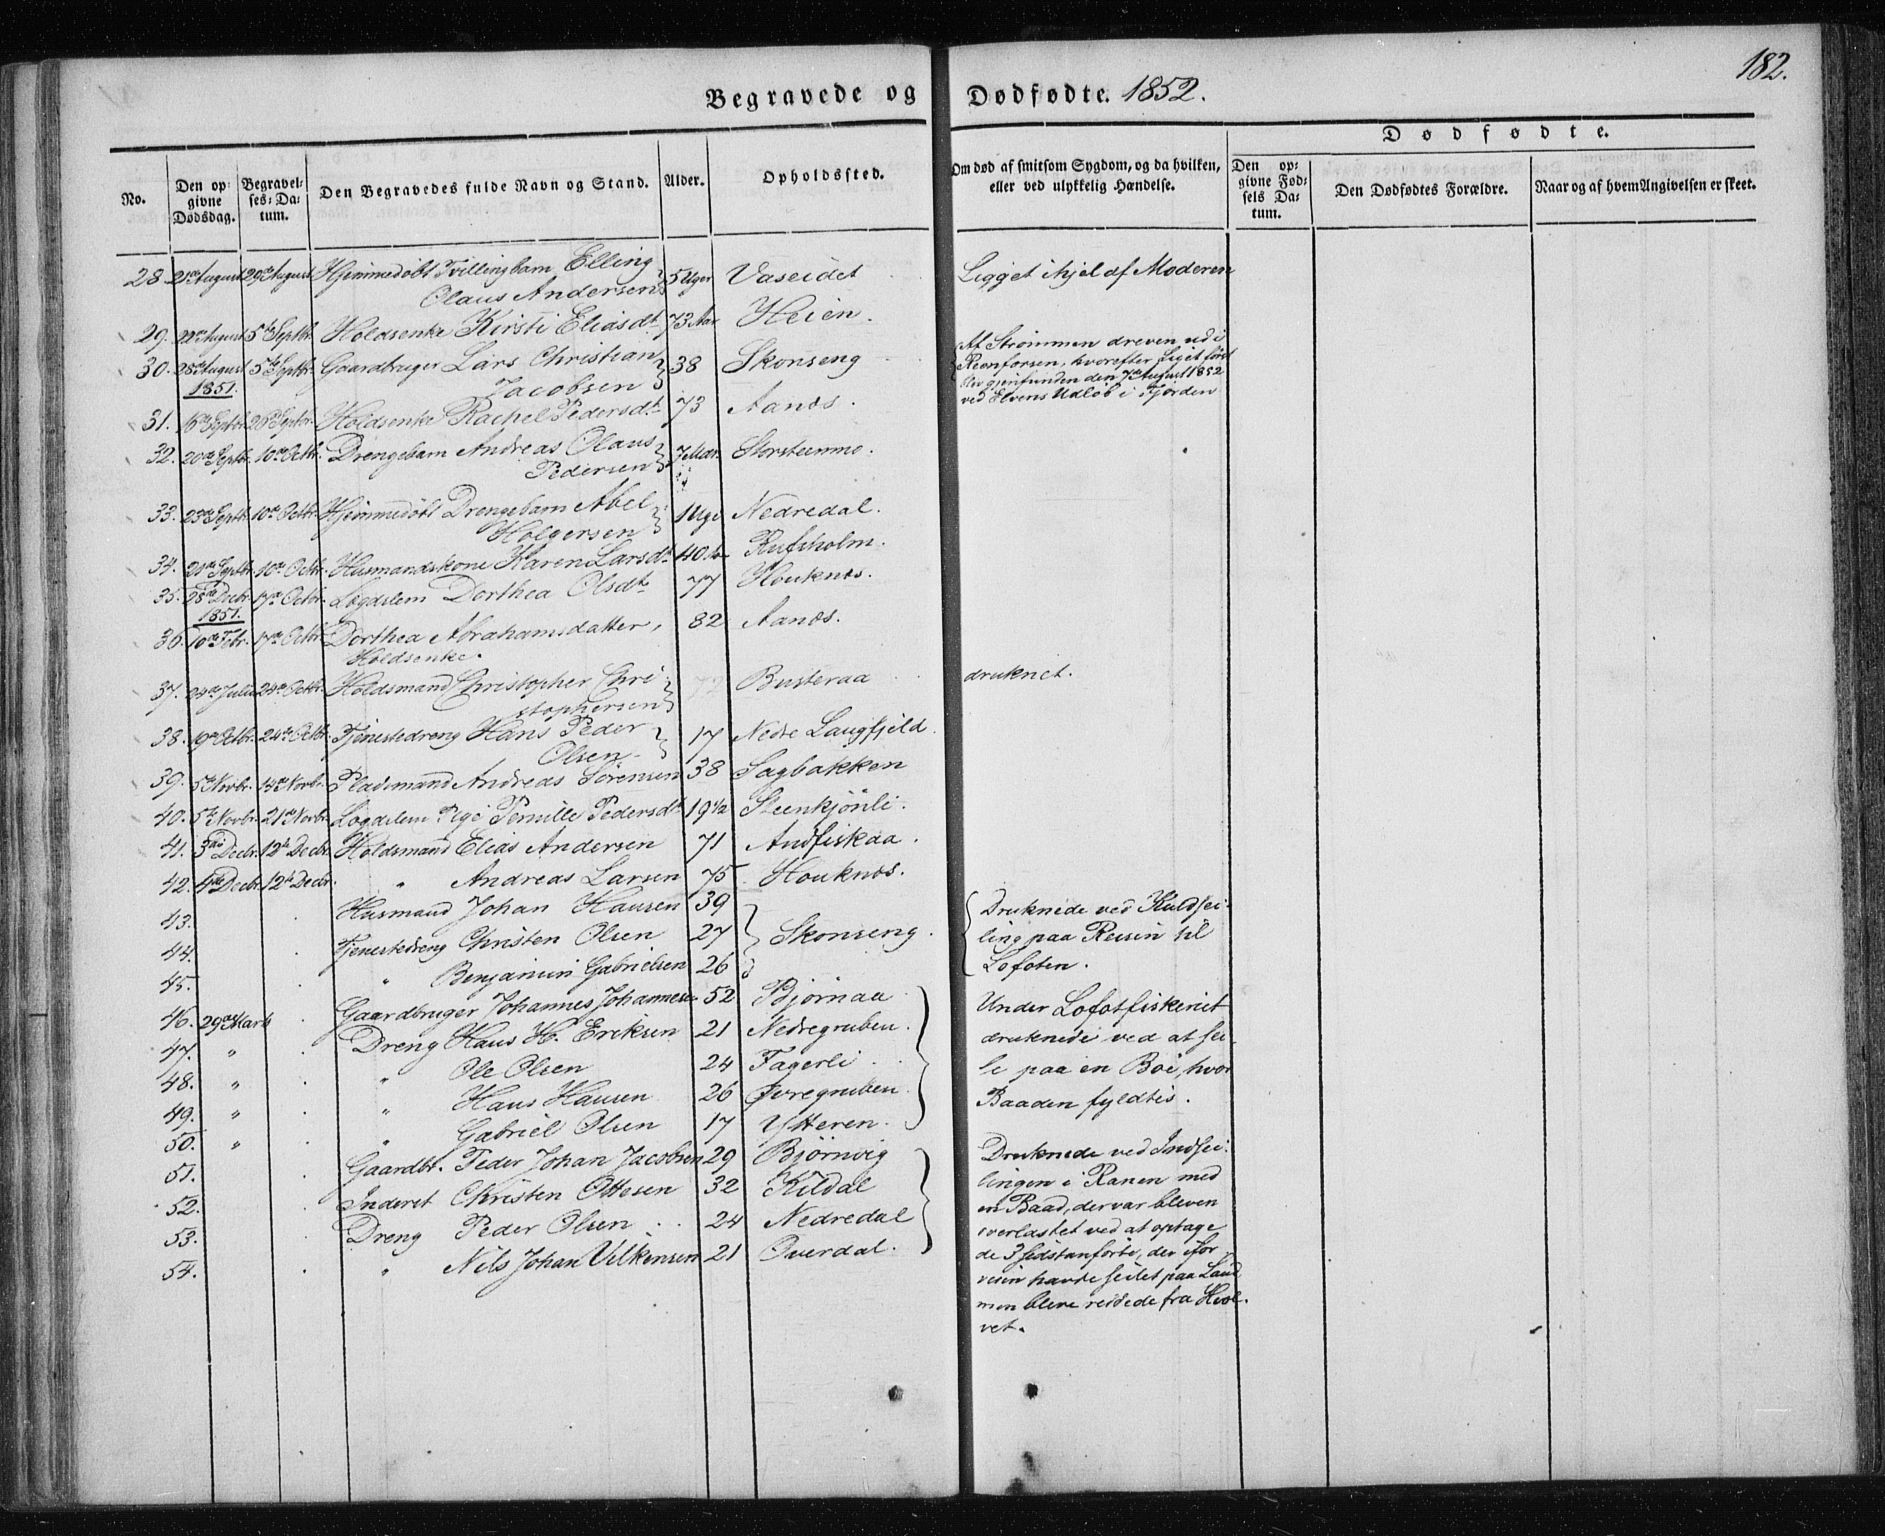 182.
Begravede og Dødfødte. 1852.
Dødfødte.
No.
Den opgivne Dødsdag.
Begravelses-Datum.
Den Begravedes fulde Navn og Stand.
Alder.
Opholdssted.
Om død af smitsom Sygdom, og da hvilken, eller ved ulykkelig Hændelse.
Den opgivne Fødsels Datum.
Den Dødfødtes Forældre.
Naar og af hvem Angivelsen er skeet.
28. 21de August 29de August Hjemmedøbt Tvillingbarn Elling 5 Uger Vaseidet Ligget ihjel af Moderen
Olaus Andersen
29. 22de August 5te Septbr. Holdsenke Kirsti Eliasdt. 73 Aar Heien.
30. 28de August 5te Septbr. Gaardbruger Lars Christian 38 Skonseng Af Strømmen dreven ud i
1851. Jacobsen Reonforsen, hvorefter Liget først
blev gjenfunden den 7de August 1852
ved Elvens Udløb i Fjorden
31. 16de Septbr. 26de Septbr. Holdsenke Rachel Pedersdt. 73 Aanæs.
32. 20de Septbr. 10de Octbr. Drengebarn Andreas Olaus 7 Mdr. Storsteenmo.
Pedersen
33. 23de Septbr. 10de Octbr. Hjemmedøbt Drengebarn Abel 1 Uge Nedredal.
Holgersen
34. 20de Septbr. 10de Octbr. Husmandskone Karen Larsdt. 40 Rufsholm.
35. 28de Decbr. 17de Octbr. Lægdslem Dorthea Olsdt. 77 Houknæs.
1851.
36. 10de Febr. 17de Octbr. Dorthea Abrahamsdatter, 82 Aanæs.
Holdsenke.
37. 24de Julii 24de Octbr. Holdsmand Christopher Chri- Busteraa druknet.
stophersen
38. 19de Octbr. 24de Octbr. Tjenestedreng Hans Peder 17 Nedre Langfjeld.
Olsen
39. 5te Novbr. 14de Novbr. Pladsmand Andreas Sørensen 38 Sagbakken
40. 5te Novbr. 21de Novbr. Lægdslem Pige Pernille Pedersdt. 19 1/2 Steenkjønli.
41. 3die Decbr. 12te Decbr. Holdsmand Elias Andersen 71 Andfiskaa.
42. 4de Decbr. 12te Decbr. " Andreas Larsen 75 Houknæs.
43. Husmand Johan Hansen 39 Druknede ved Kuldsei-
44. Tjenestedreng Christen Olsen 27 Skonseng. ling paa Reisen til
45. " Benjamin Gabrielsen 26 Lofoten.
46. 29de Marts Gaardbruger Johannes Johannesen 52 Bjørnaa Under Lofotfiskeriet
47. " Dreng Hans H. Eriksen 21 Nedregruben. druknede ved at sei-
48. " " Ole Olsen 24 Fagerli le paa en Boe, hvor
49. " " Hans Hansen 26 Øvregruben Baaden fyldtes.
50. " " Gabriel Olsen 17 Ytteren.
51. Gaardbr. Peder Johan Jacobsen 29 Bjørnvig Druknede ved Indsei-
52. Inderst Christen Ottesen 32 Kildal lingen i Ranen med
53. Dreng Peder Olsen 24 Nedredal en Baad, der var bleven
54. " Nils Johan Vilkensen 21 Overdal. overlastet ved at optage
de 3 sidstanførte, der ifor-
veien havde seilet paa Land
men bleve reddede fra Hvæl-
vet.